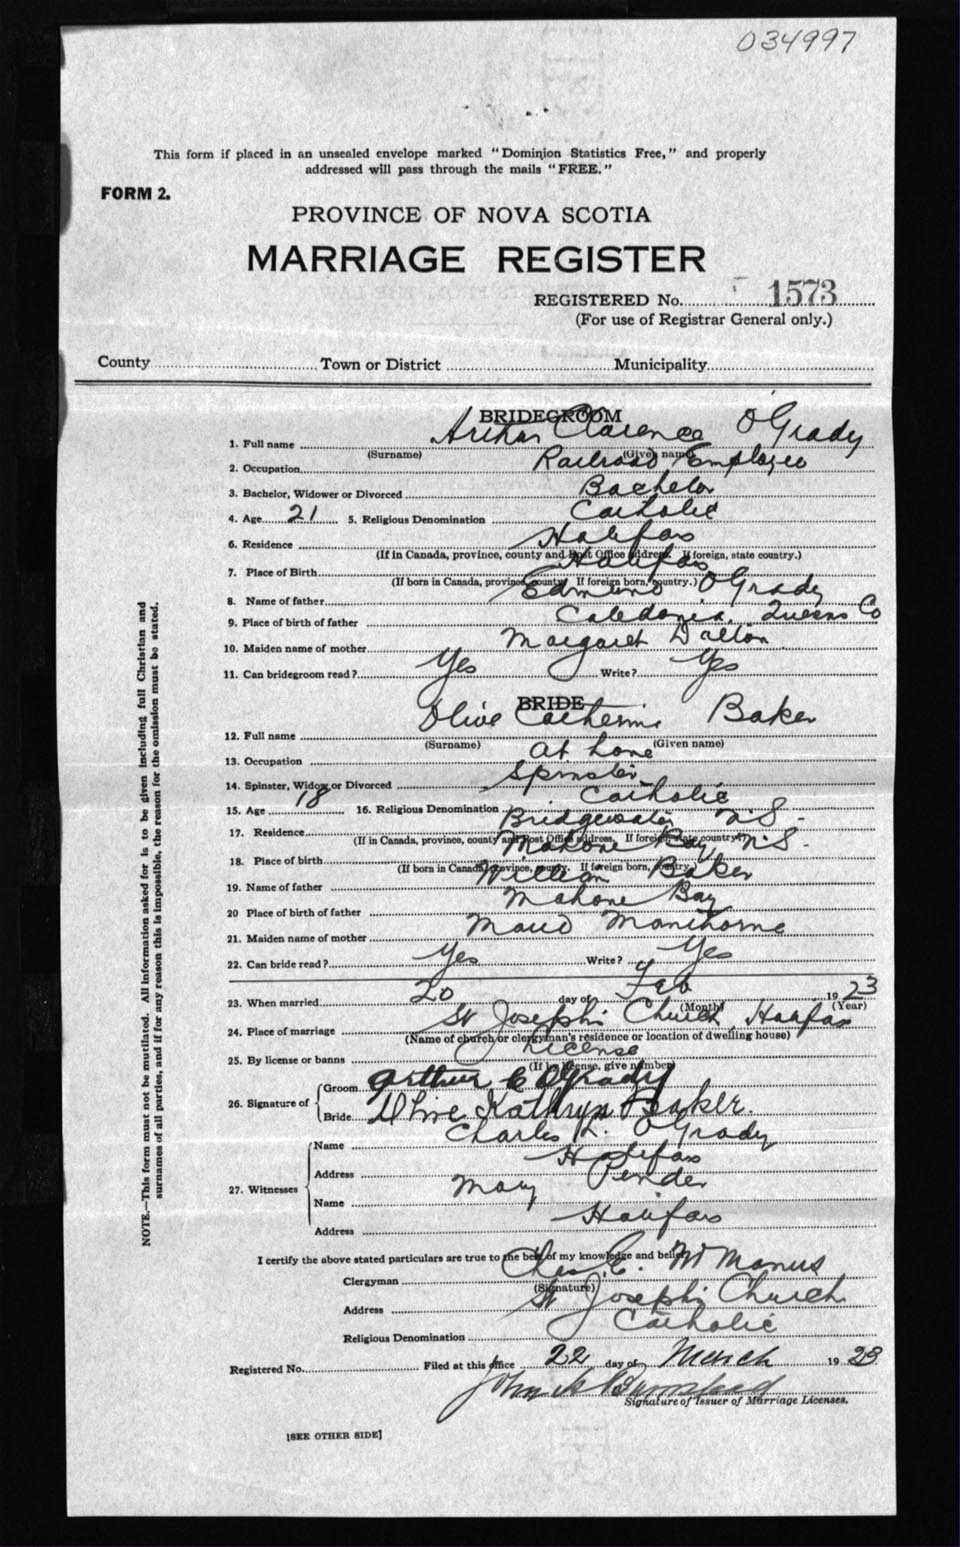 034997
This form if placed in an unsealed envelope marked "Dominion Statistics Free," and properly
addressed will pass through the mails "FREE."
FORM 2.
PROVINCE OF NOVA SCOTIA
MARRIAGE REGISTER
REGISTERED No. 1573
(For use of Registrar General only.)
County Town or District Municipality
BRIDEGROOM
1. Full name Arthur Clarence O'Grady
(Surname) (Given name)
2. Occupation Railroad Employee
3. Bachelor, Widower or Divorced Bachelor
4. Age 21 5. Religious Denomination Catholic
6. Residence Halifax
(If in Canada, province, county and Post Office address. If foreign, state country.)
7. Place of Birth Halifax
(If born in Canada, province, county. If foreign born, country.)
8. Name of father Edmund O'Grady
9. Place of birth of father Caledonia, Queens Co
10. Maiden name of mother Margaret Dalton
11. Can bridegroom read? Yes Write? Yes
BRIDE
12. Full name Olive Catherine Baker
(Surname) (Given name)
13. Occupation at home
14. Spinster, Widow or Divorced Spinster
15. Age 18 16. Religious Denomination Catholic
17. Residence Bridgewater N.S.
(If in Canada, province, county and Post Office address. If foreign state country.)
18. Place of birth Mahone Bay N.S.
(If born in Canada, province, county. If foreign born, country.)
19. Name of father William Baker
20 Place of birth of father Mahone Bay
21. Maiden name of mother Maud Manthorne
22. Can bride read? Yes Write? Yes
23. When married 20 day of Feb 1923
(Month) (Year)
24. Place of marriage St Joseph's Church, Halifax
(Name of church or clergyman's residence or location of dwelling house)
25. By license or banns License
(If by license, give number)
26. Signature of Groom Arthur C O'Grady
Bride Olive Kathryn Baker.
27. Witnesses Name Charles L. O'Grady
Address Halifax
Name Mary Pender
Address Halifax
I certify the above stated particulars are true to the best of my knowledge and belief.
Clergyman Chas. E. McManus
(Signature)
Address St Joseph's Church
Religious Denomination Catholic
Registered No. Filed at this office 22 day of March 1923
John A
Signature of Issuer of Marriage Licenses.
[SEE OTHER SIDE]
NOTE.—This form must not be mutilated. All information asked for is to be given including full Christian and
surnames of all parties, and if for any reason this is impossible, the reason for the omission must be stated.